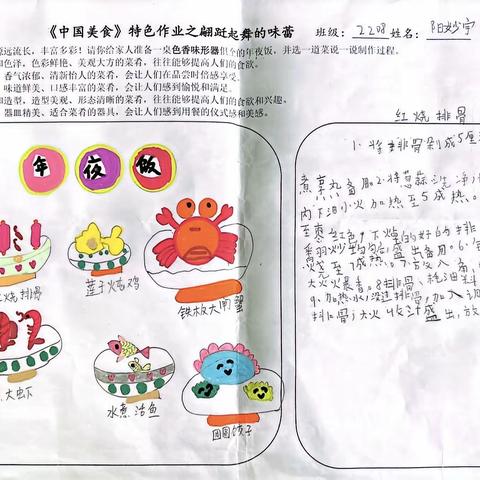 《中国美食》特色作业之翩跹起舞的味蕾 班级：2208 姓名：阳妙宇
源远流长，丰富多彩！请你给家人准备一桌色香味形器俱全的年夜饭，并选一道菜说一说制作过程。
和色泽，色彩鲜艳、美观大方的菜肴，往往能够提高人们的食欲。
香气浓郁、清新怡人的菜肴，会让人们在品尝时倍感享受。
味道鲜美、口感丰富的菜肴，会让人们感到愉悦和满足。
和造型，造型美观、形态清晰的菜肴，往往能够提高人们的食欲和兴趣。
器皿精美、适合菜肴的器具，会让人们感到用餐的仪式感和美感。
年夜饭
红烧排骨
莲子炖鸡
铁板大闸蟹
大虾
水煮活鱼
团圆饺子
红烧排骨
1、将排骨剁成5厘
煮烹丸备用2.将葱蒜洗净
内下油小火加热至5成热。
至枣红色，下焯的好的排
翻炒均匀，盛出备用。6.
烧至7成热。7.放入
大火爆香。8.排骨、
9、加热水，没过排骨，加入
排骨；大火收汁盛出，放